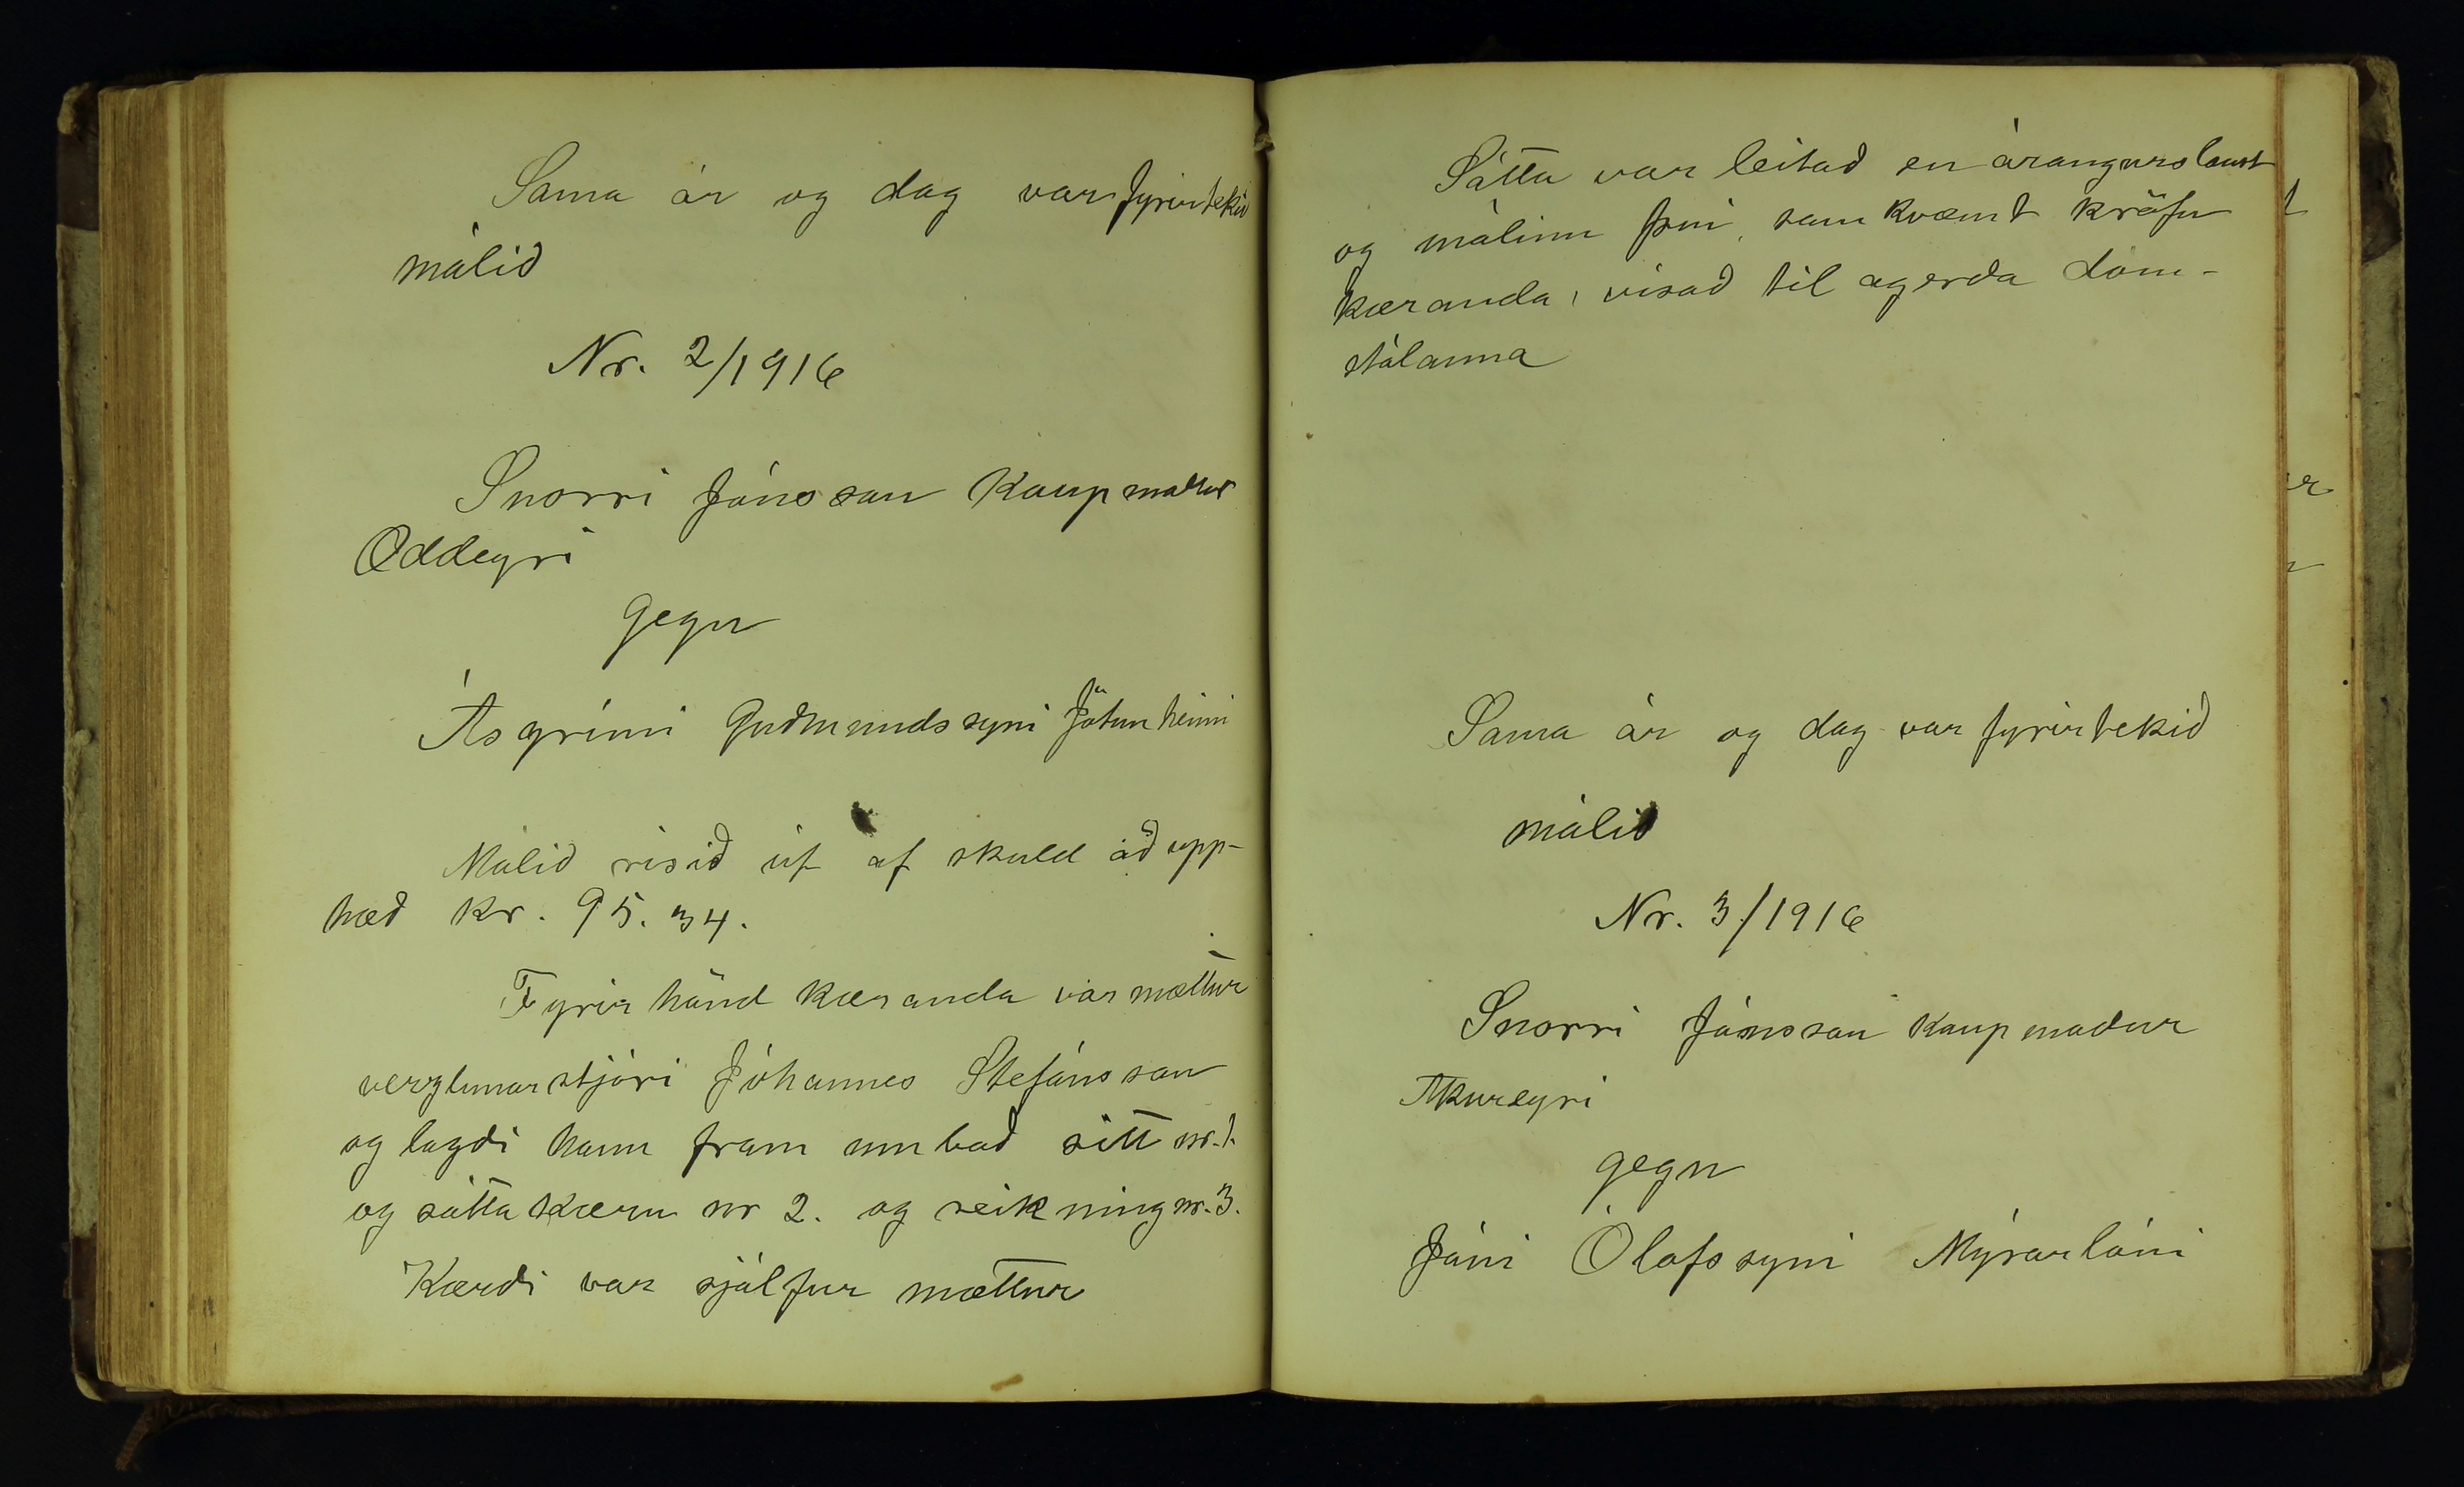 Sama ár og dag var fyrirtekið
málið
Nr. 2/1916
Snorri Jónsson kaupmaður
Oddeyri
gegn
Ásgrími Guðmundssyni Jötunheimi
Málið risið út af skuld að upp-
hæð kr. 95.34.
Fyrir hönd kæranda var mættur
verzlunarstjóri Jóhannes Stefánsson
og lagði hann fram umboð sitt nr. 1.
og sáttakæru nr 2. og reikning nr. 3.
Kærði var sjálfur mættur
Sátta var leitað en árangurslaust
og málinu því, samkvæmt kröfu
kæranda, vísað til agerða dóm-
stólanna
Sama ár og dag var fyrirtekið
málið
Nr. 3/1916
Snorri Jónsson kaupmaður
Akureyri
gegn
Jóni Ólafssyni Mýrarlóni